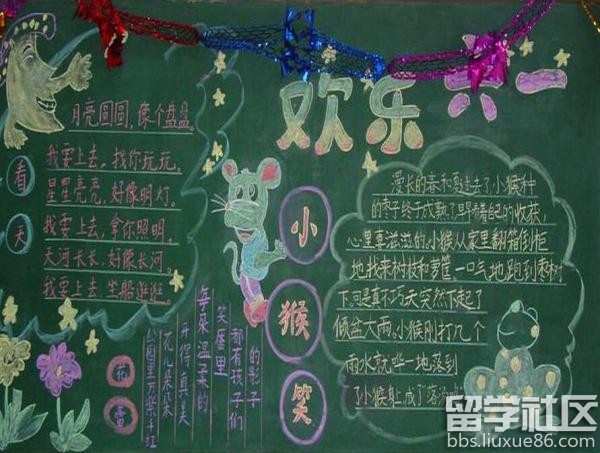 欢乐六一
看天
月亮圆圆，像个盘盘。
我要上去，找你玩玩。
星星亮亮，好像明灯。
我要上去，拿你照明。
天河长长，好像长河。
我要上去，坐船逛逛。
花
公园里万紫千红
花儿朵朵
开得真美
每朵温柔的
笑靥里
都有孩子们
的影子
小猴笑
漫长的春和夏过去了，小猴种
的枣子终于成熟了，看着自己的收获，
心里喜滋滋的。小猴从家里翻箱倒柜
地找来树枝和箩筐一口气地跑到枣树
下。可是真不巧天突然下起了
倾盆大雨。小猴刚打几个
雨水就哗一地落到
了小猴身上成了落汤
留学社区
bbs.liuxue86.com